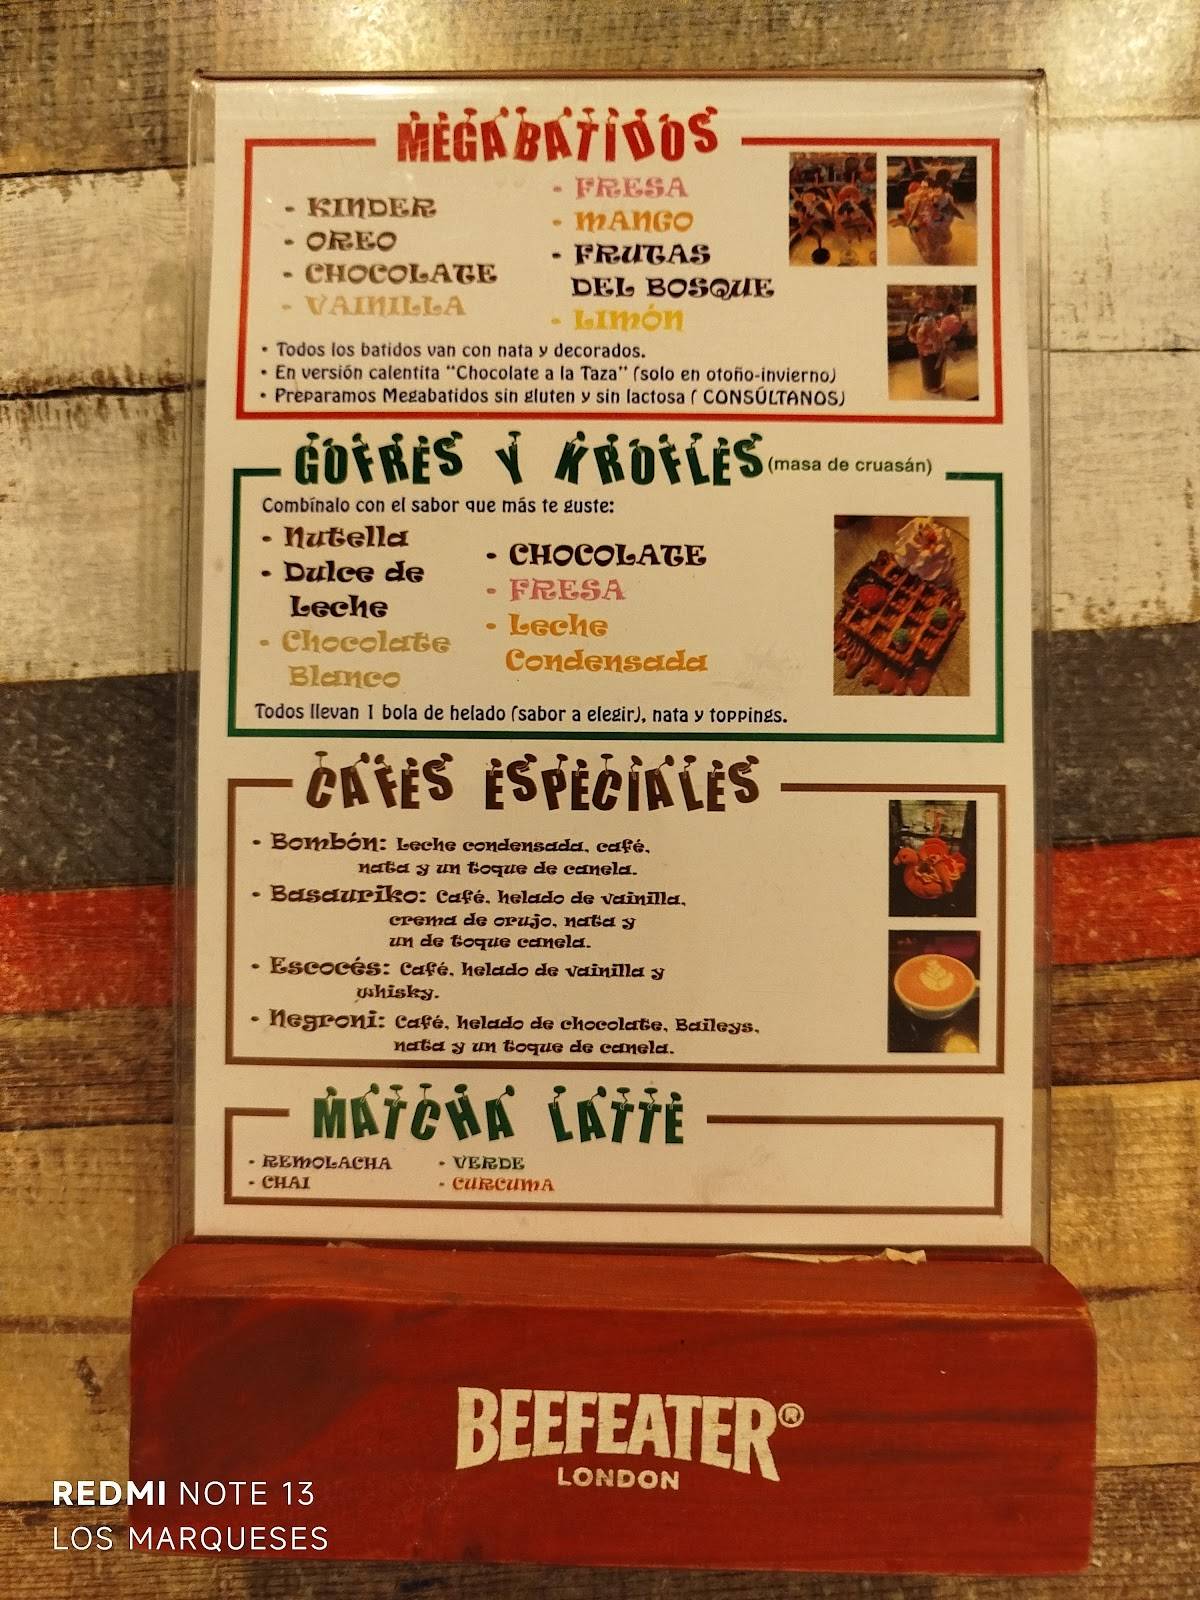 MEGABATIDOS
- KINDER
- OREO
- CHOCOLATE
- VAINILLA
- FRESA
- MANGO
- FRUTAS
DEL BOSQUE
- LIMÓN
• Todos los batidos van con nata y decorados.
• En versión calentita "Chocolate a la Taza" (solo en otoño-invierno)
• Preparamos Megabatidos sin gluten y sin lactosa ( CONSÚLTANOS)
GOFRES Y KROFLES (masa de cruasán)
Combínalo con el sabor que más te guste:
- Nutella
- Dulce de
Leche
- Chocolate
Blanco
- CHOCOLATE
- FRESA
- Leche
Condensada
Todos llevan 1 bola de helado (sabor a elegir), nata y toppings.
CAFES ESPECIALES
- Bombón: Leche condensada, café,
nata y un toque de canela.
- Basauriko: Café, helado de vainilla,
crema de orujo, nata y
un de toque canela.
- Escocés: Café, helado de vainilla y
whisky.
- Negroni: Café, helado de chocolate, Baileys,
nata y un toque de canela.
MATCHA LATTE
- REMOLACHA
- CHAI
- VERDE
- CURCUMA
BEEFEATER®
LONDON
REDMI NOTE 13
LOS MARQUESES